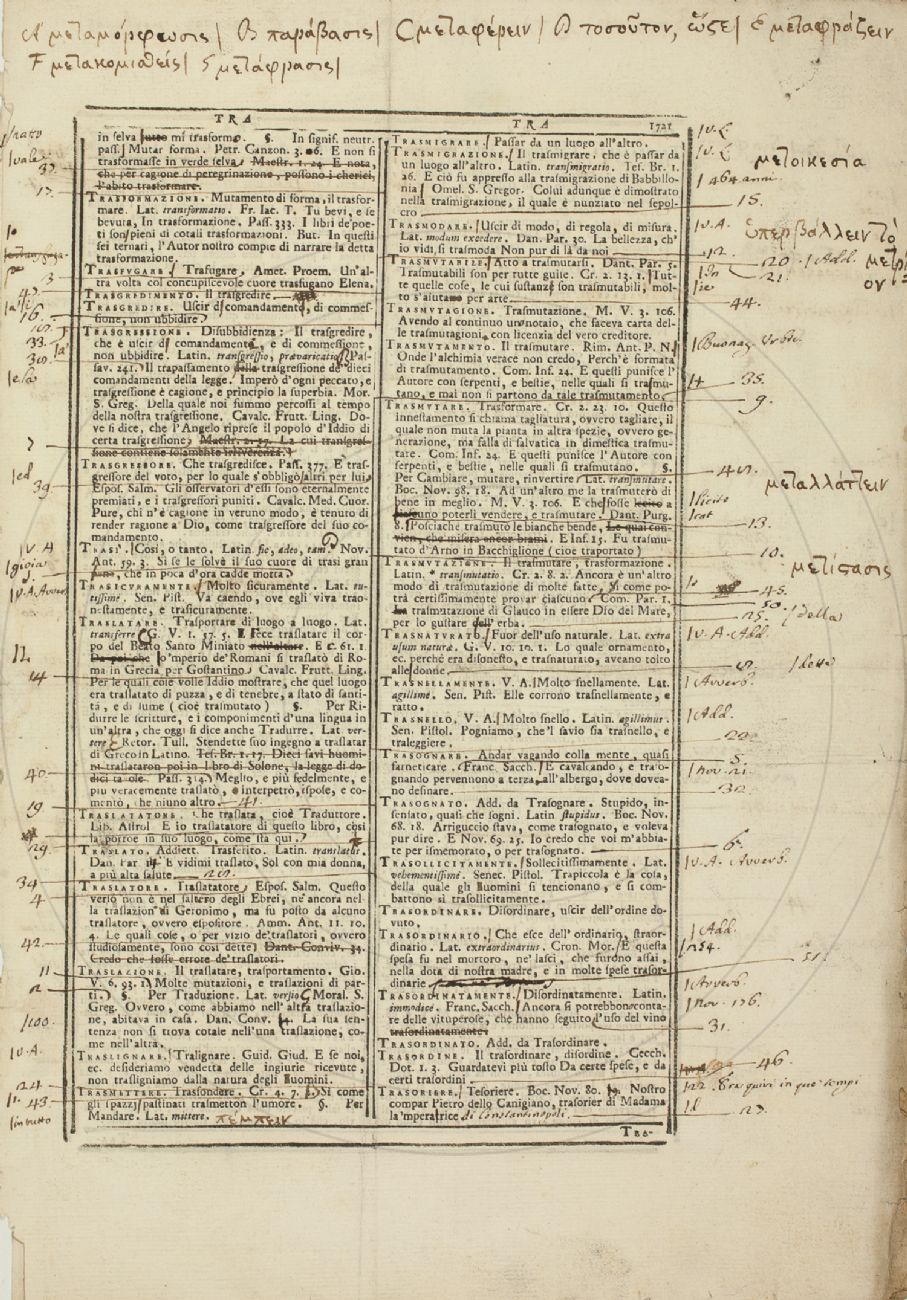 A μεταμόρφωσις / B παράβασις / C μεταφέρειν / D τοσοῦτον, ὥςε / E μεταφράζειν
F μετακομιαθείς / G μετάφρασις /
TRA
in selva mi trasformo. §. In signif. neutr.
pass. Mutar forma. Petr. Canzon. 3. 6. E non si
trasformasse in verde selva. Maestr. 1. 24. E nota,
che per cagione di peregrinazione, possono i cherici,
l'abito trasformare.
TRASFORMAZIONE. Mutamento di forma, il trasfor-
mare. Lat. transformatio. Fr. Iac. T. Tu bevi, e se
bevuta, In trasformazione. Pass. 333. I libri de'poe-
ti son pieni di cotali trasformazioni. But. In questi
sei ternari, l'Autor nostro compie di narrare la detta
trasformazione.
TRASFUGARE. Trafugare. Amet. Proem. Un'al-
tra volta col concupiscevole cuore trasfugano Elena.
TRASGREDIMENTO. Il trasgredire.
TRASGREDIRE. Uscir di comandamento, di commes-
sione, non ubbidire.
TRASGRESSIONE. Disubbidienza: Il trasgredire,
che è uscir di comandamento, e di commessione,
non ubbidire. Latin. transgressio, prævaricatio. Pas-
sav. 241. Il trapassamento della trasgressione de'dieci
comandamenti della legge. Imperò d'ogni peccato, e
trasgressione è cagione, e principio la superbia. Mor.
S. Greg. Della qual noi fummo percossi al tempo
della nostra trasgressione. Cavalc. Frutt. Ling. Do-
ve si dice, che l'Angelo riprese il popolo d'Iddio di
certa trasgressione. Maestr. 2. 39. La cui transgres-
sione contiene solamente irriverenza.
TRASGRESSORE. Che trasgredisce. Pass. 377. E tras-
gressore del voto, per lo quale s'obbligò altri per lui.
Espos. Salm. Gli osservatori d'essi sono eternalmente
premiati, e i trasgressori puniti. Cavalc. Med. Cuor.
Pure, chi n'è cagione in veruno modo, è tenuto di
render ragione a Dio, come trasgressore del suo co-
mandamento.
TRASI'. Così, o tanto. Latin. sic, adeo, tam. Nov.
Ant. 59. 3. Sì se le solvè il suo cuore di trasi gran
che in poca d'ora cadde morta.
TRASICURAMENTE. Molto sicuramente. Lat. tu-
tissimè. Sen. Pist. Va caendo, ove egli viva trao-
nestamente, e trasicuramente.
TRASLATARE. Trasportare di luogo a luogo. Lat.
transferre. G. V. 1. 57. 5. Fece traslatare il cor-
po del Beato Santo Miniato nell'altare. E c. 61. 1.
Da poi che lo'mperio de' Romani si traslatò di Ro-
ma in Grecia per Gostantino. Cavalc. Frutt. Ling.
Per le quali cose volle Iddio mostrare, che quel luogo
era traslatato di puzza, e di tenebre, a stato di santi-
tà, e di lume (cioè trasmutato) §. Per Ri-
durre le scritture, e i componimenti d'una lingua in
un'altra, che oggi si dice anche Tradurre. Lat. ver-
tere. Retor. Tull. Stendette suo ingegno a traslatar
di Greco in Latino. Tes. Br. 1. 17. Dieci savi huomi-
ni traslataron poi in libro di Solone, la legge di do-
dici tavole. Pass. 314. Meglio, e più fedelmente, e
più veracemente traslatò, e interpetrò, ispose, e co-
mentò, che niuno altro. 41.
TRASLATATORE. Che traslata, cioè Traduttore.
Lib. Astrol. E io traslatatore di questo libro, così
la porroe in suo luogo, come sta qui.
TRASLATO. Addiett. Trasferito. Latin. translatus.
Dan. Par. 14. E vidimi traslato, Sol con mia donna,
a più alta salute.
TRASLATORE. Traslatatore. Espos. Salm. Questo
verso non è nel saltero degli Ebrei, ne ancora nel-
la traslazion di Geronimo, ma fu posto da alcuno
traslatore, ovvero espositore. Amm. Ant. 11. 10.
4. Le quali cose, o per vizio de'traslatori, ovvero
studiosamente, sono così dette. Dant. Conviv. 34.
Credo che fosse errore de'traslatori.
TRASLAZIONE. Il traslatare, trasportamento. Gio.
V. 6. 93. 1. Molte mutazioni, e traslazioni di par-
ti. §. Per Traduzione. Lat. versio. Moral. S.
Greg. Ovvero, come abbiamo nell'altra traslazio-
ne, abitava in casa. Dan. Conv. 4. La sua sen-
tenza non si trova cotale nell'una traslazione, co-
me nell'altra.
TRASLIGNARE. Tralignare. Guid. Giud. E se noi,
ec. desideriamo vendetta delle ingiurie ricevute,
non trasligniamo dalla natura degli Huomini.
TRASMETTERE. Trasfondere. Cr. 4. 7. Sì come
gli spazzi pastinati trasmetton l'umore. §. Per
Mandare. Lat. mittere. πέμπειν
TRA 1721
TRASMIGRARE. Passar da un luogo all'altro.
TRASMIGRAZIONE. Il trasmigrare: che è passar da
un luogo all'altro. Latin. transmigratio. Tes. Br. 1.
26. E ciò fu appresso alla trasmigrazione di Babbillo-
nia. Omel. S. Gregor. Colui adunque è dimostrato
nella trasmigrazione, il quale è nunziato nel sepol-
cro
TRASMODARE. Uscir di modo, di regola, di misura.
Lat. modum excedere. Dan. Par. 30. La bellezza, ch'
io vidi, si trasmoda Non pur di là da noi
TRASMUTABILE. Atto a trasmutarsi. Dant. Par. 5.
Trasmutabili son per tutte guise. Cr. 2. 13. 1. Tut-
te quelle cose, le cui sustanze son trasmutabili, mol-
to s'aiutano per arte
TRASMUTAGIONE. Trasmutazione. M. V. 3. 106.
Avendo al continuo un notaio, che faceva carta del-
le trasmutagioni, con licenzia del vero creditore.
TRASMUTAMENTO. Il trasmutare. Rim. Ant. P. N.
Onde l'alchimia verace non credo, Perch'è formata
di trasmutamento. Com. Inf. 24. E questi punisce l'
Autore con serpenti, e bestie, nelle quali si trasmu-
tano, e mai non si partono da tale trasmutamento.
TRASMUTARE. Trasformare. Cr. 2. 23. 10. Questo
innestamento si chiama tagliatura, ovvero tagliare, il
quale non muta la pianta in altra spezie, ovvero ge-
nerazione, ma falla di salvatica in dimestica trasmu-
tare. Com. Inf. 24. E questi punisce l'Autore con
serpenti, e bestie, nelle quali si trasmutano. §.
Per Cambiare, mutare, rinvertire. Lat. transmutare.
Boc. Nov. 98. 18. Ad un'altro me la trasmuterò di
bene in meglio. M. V. 3. 106. E che fosse lecito a
ciascuno poterli vendere, e trasmutare. Dant. Purg.
8. Posciachè trasmutò le bianche bende, Le quai con-
vien, che misera ancor brami. E Inf. 15. Fu trasmu-
tato d'Arno in Bacchiglione (cioè traportato)
TRASMUTAZIONE. Il trasmutare, trasformazione.
Latin. transmutatio. Cr. 2. 8. 2. Ancora è un'altro
modo di trasmutazione di molte fatte, sì come po-
trà certissimamente provar ciascuno. Com. Par. 1.
La trasmutazione di Glauco in essere Dio del Mare,
per lo gustare dell'erba.
TRASNATURATO. Fuor dell'uso naturale. Lat. extra
usum naturæ. G. V. 10. 10. 1. Lo quale ornamento,
ec. perchè era disonesto, e trasnaturato, aveano tolto
alle donne
TRASNELLAMENTE. V. A. Molto snellamente. Lat.
agillimè. Sen. Pist. Elle corrono trasnellamente, e
ratto.
TRASNELLO. V. A. Molto snello. Latin. agillimus.
Sen. Pistol. Pognamo, che'l savio sia trasnello, e
traleggiere.
TRASOGNARE. Andar vagando colla mente, quasi
farneticare. Franc. Sacch. E cavalcando, e traso-
gnando pervennono a terza, all'albergo, dove dovea-
no desinare.
TRASOGNATO. Add. da Trasognare. Stupido, in-
sensato, quasi che sogni. Latin. stupidus. Boc. Nov.
68. 18. Arriguccio stava, come trasognato, e voleva
pur dire. E Nov. 69. 25. Io credo che voi m'abbia-
te per ismemorato, o per trasognato.
TRASOLLICITAMENTE. Sollecitissimamente. Lat.
vehementissimè. Senec. Pistol. Trapiccola è la cosa,
della quale gli Huomini si tencionano, e si com-
battono sì trasollicitamente.
TRASORDINARE. Disordinare, uscir dell'ordine do-
vuto.
TRASORDINARIO. Che esce dell'ordinario, straor-
dinario. Lat. extraordinarius. Cron. Mor. E questa
spesa fu nel mortoro, ne'lasci, che furono assai,
nella dota di nostra madre, e in molte spese trasor-
dinarie
TRASORDINATAMENTE. Disordinatamente. Latin.
immodicè. Franc. Sacch. Ancora si potrebbono conta-
re delle vituperose, che hanno seguito l'uso del vino
trasordinatamente.
TRASORDINATO. Add. da Trasordinare.
TRASORDINE. Il trasordinare, disordine. Cecch.
Dot. 1. 3. Guardatevi più tosto Da certe spese, e da
certi trasordini
TRASORIERE. Tesoriere. Boc. Nov. 80. Nostro
compar Pietro dello Canigiano, trasorier di Madama
la'mperatrice di Constantinopoli.
TRA-
μετοικεσία
464 anni
15.
V.A.
ὑπερβάλλειν τὸ
μέτρι
ον
12.
20. / Add.
21.
44.
Buonag. Urbic.
35.
9.
μεταλλάττειν
13.
10.
μετίασις
45.
50.
25. / della
V. A. Add.
Avverb.
Add.
5.
nov. 21.
32.
6.
V. A. Avverb.
Add.
254.
Avverb.
nov. 136.
31.
46.
122. Era quivi in que tempi
23.